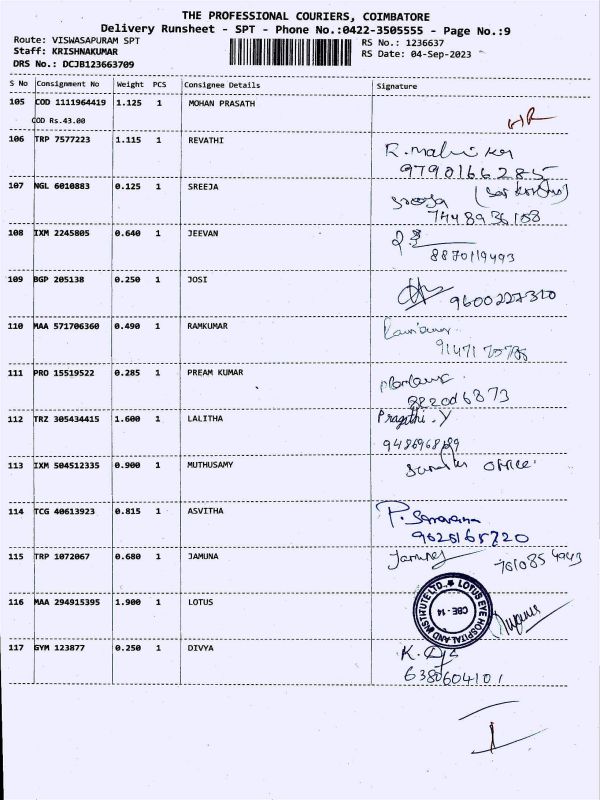 THE PROFESSIONAL COURIERS, COIMBATORE
Delivery Runsheet - SPT - Phone No.:0422-3505555 - Page No.:9
Route: VISWASAPURAM SPT
Staff: KRISHNAKUMAR
DRS No.: DCJB123663709
RS No.: 1236637
RS Date: 04-Sep-2023
S No Consignment No Weight PCS Consignee Details Signature
105 COD 1111964419 1.125 1 MOHAN PRASATH
COD Rs.43.00
106 TRP 7577223 1.115 1 REVATHI
9790166285
107 NGL 6010883 0.125 1 SREEJA
Sreeja
7448936168
108 IXM 2245805 0.640 1 JEEVAN
8870119493
109 BGP 205138 0.250 1 JOSI
9600227310
110 MAA 571706360 0.490 1 RAMKUMAR
111 PRO 15519522 0.285 1 PREAM KUMAR
112 TRZ 305434415 1.600 1 LALITHA
Pragithi.Y
113 IXM 504512335 0.900 1 MUTHUSAMY
office
114 TCG 40613923 0.815 1 ASVITHA
P. Saravana
9626165720
115 TRP 1072067 0.680 1 JAMUNA
Jamuna
761085 4943
116 MAA 294915395 1.900 1 LOTUS
LOTUS EYE HOSPITAL AND INSTITUTE LTD.,
CBE - 14
117 GYM 123877 0.250 1 DIVYA
6380604101